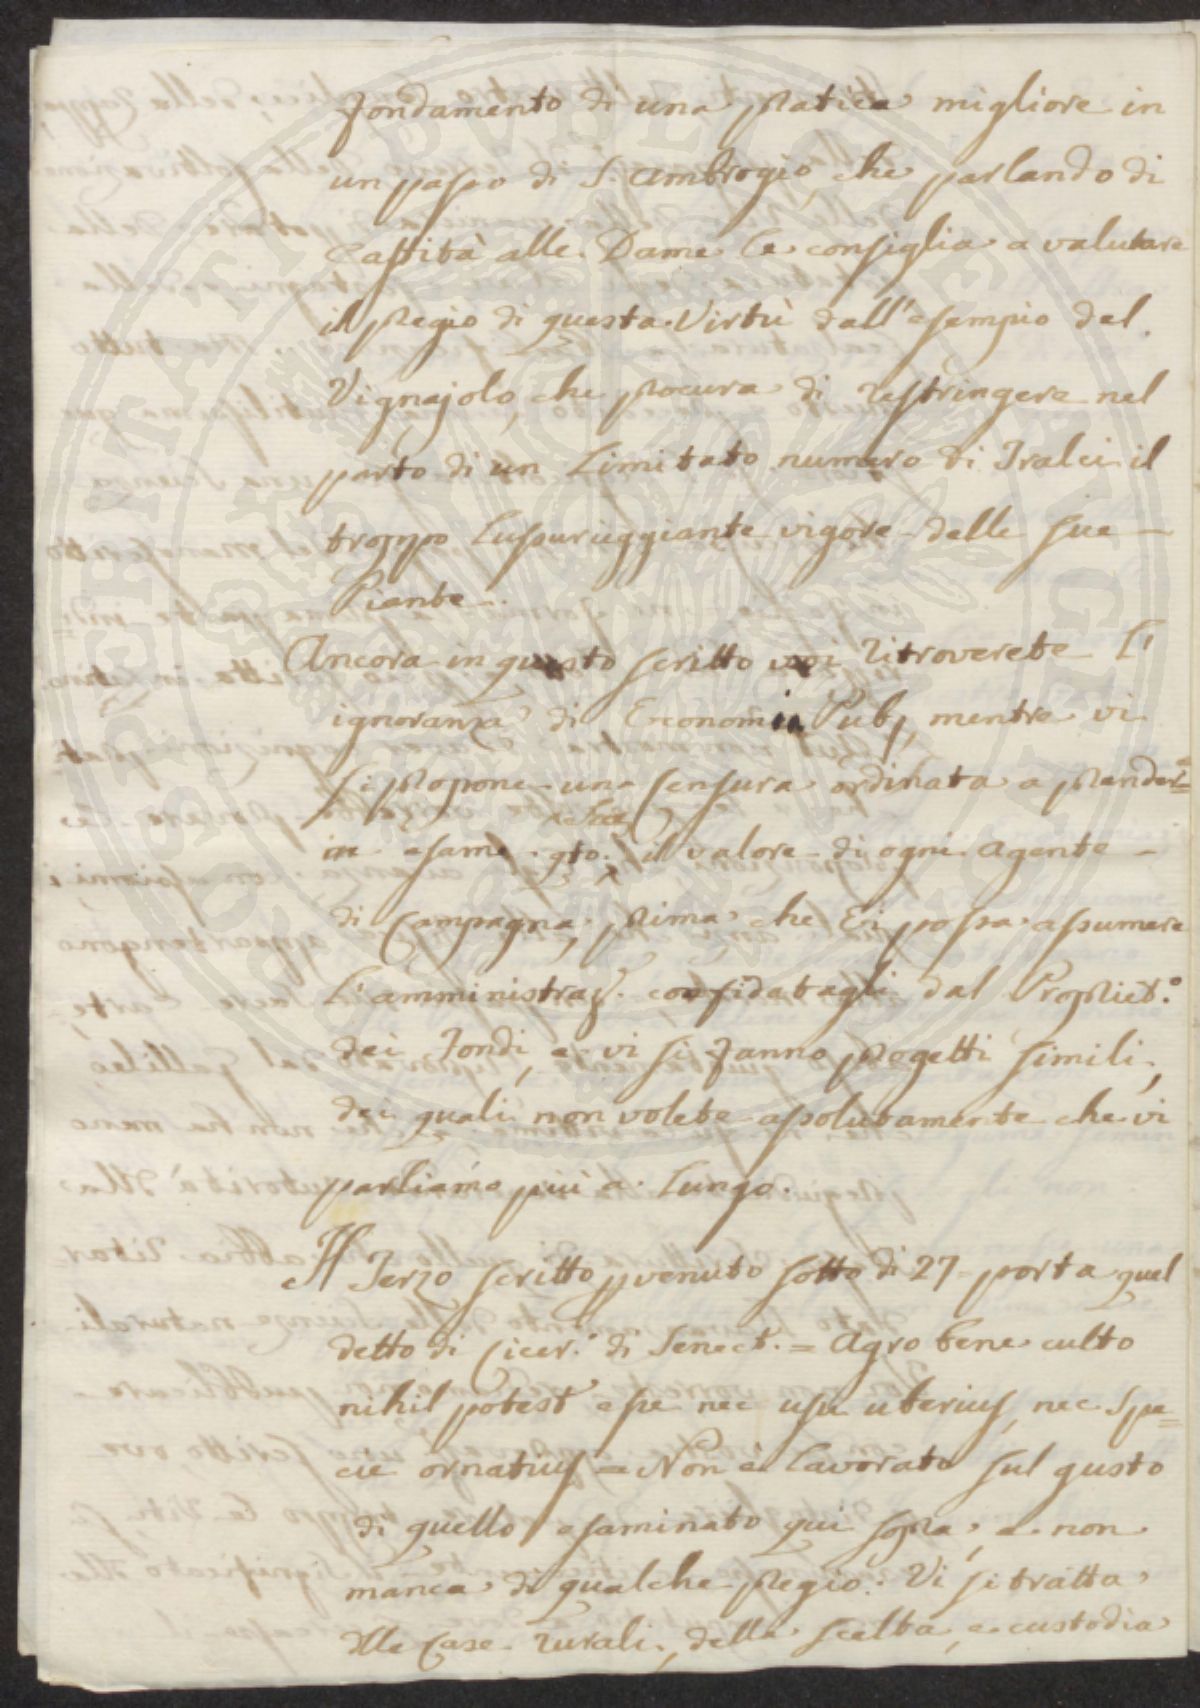 fondamento di una pratica migliore in
un passo di S. Ambrogio, che parlando di
Castità alle Dame le consiglia a valutare
il pregio di questa Virtù dall'esempio del
Vignajolo, che procura di restringere nel
parto di un limitato numero di Tralci il
troppo lussureggiante vigore delle sue
Piante.
Ancora in questo scritto voi ritroverete l'
ignoranza di Economia Pub, mentre vi
si propone una censura ordinata a prender
in esame qto. il valore di ogni Agente
di Campagna, prima che Ei possa assumere
l'amministraz. confidatagli dal Propriet.º
dei Fondi, e vi si fanno progetti simili,
dei quali non volete assolutamente che vi
parliamo più a lungo.
Il Terzo scritto pvenuto sotto di 27 = porta quel
detto di Cicer.º di Senect. = Agro bene culto
nihil potest esse nec usu uberius, nec Spe=
cie ornatius = Non è lavorato sul gusto
di quello esaminato qui sopra, e non
manca di qualche pregio: Vi si tratta
dlle Case rurali, della scelta, e custodia